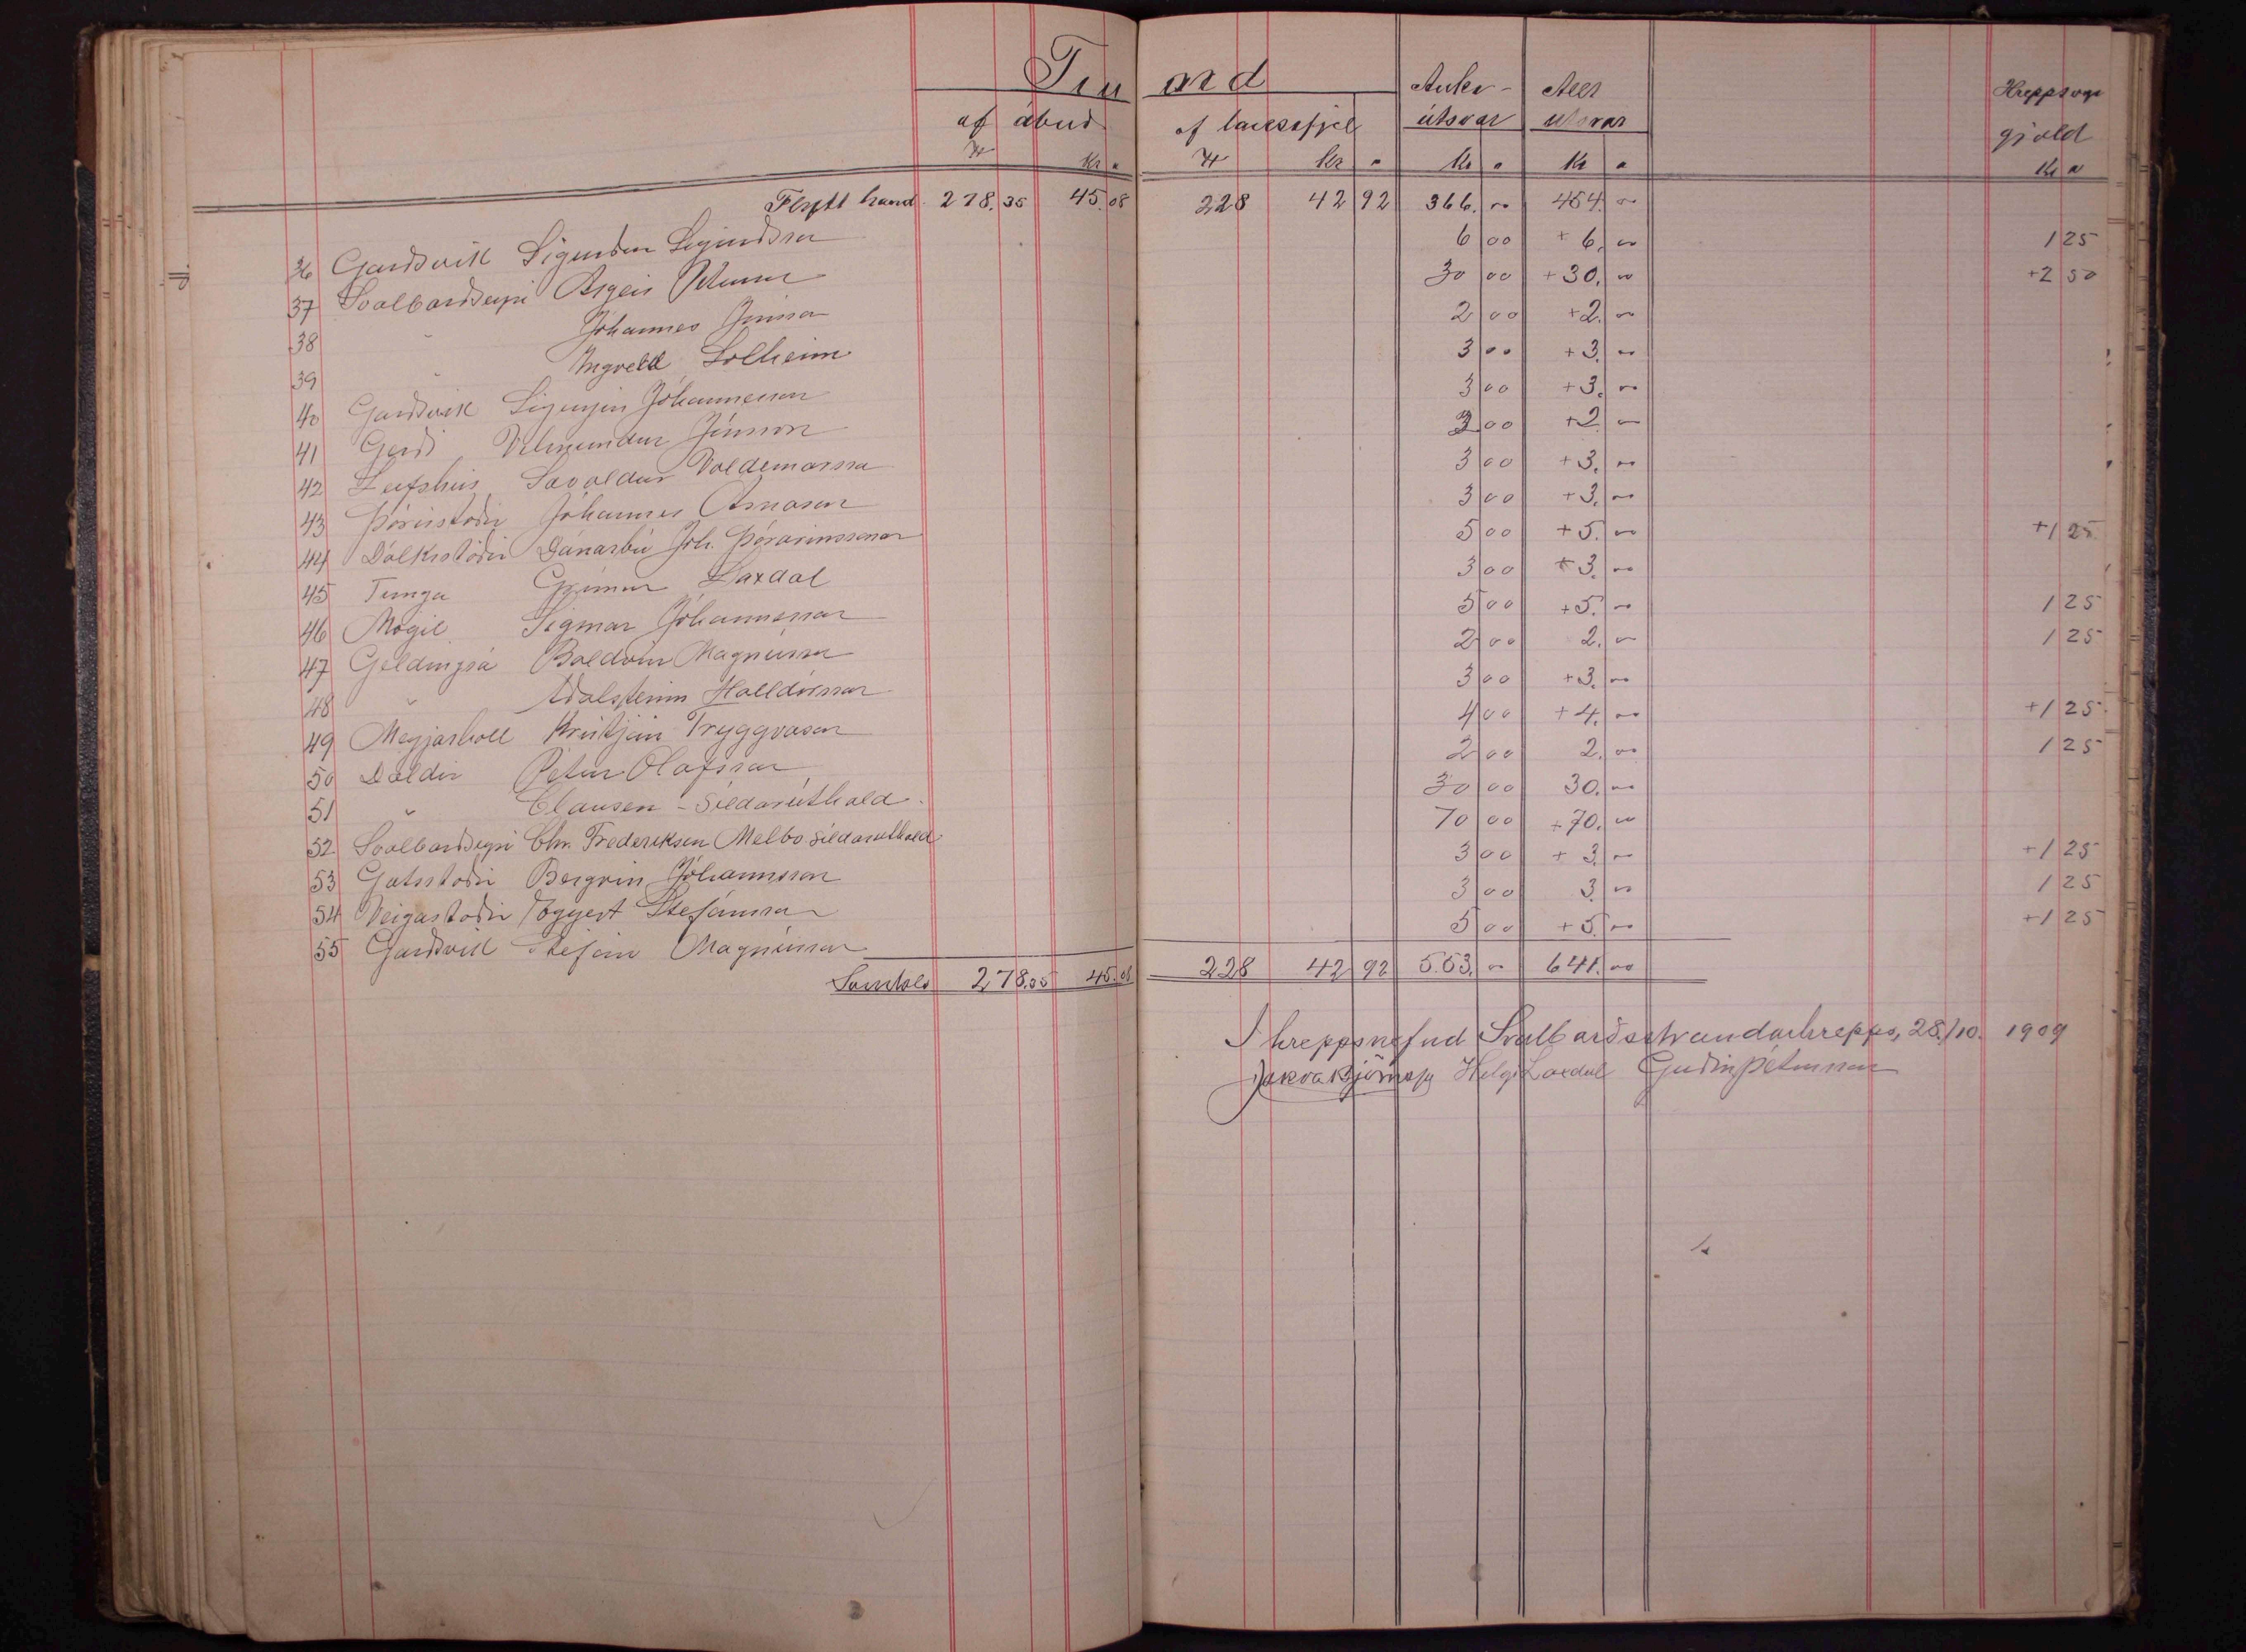 Tíu und
af ábúð af lausafje Auka- Alls Hreppsvega
útsvar útsvar gjald
kr a kr a kr a kr a kr a
Flutt hand 278.35 45.08 228 42 92 366.00 454.00
36 Garðsvík Sigurður Sigurðsson 6 00 + 6.00 1 25
37 Svalbarðseyri Ásgeir Pétursson 30 00 + 30.00 +2 50
38 " Jóhannes Jónsson 2 00 +2.00
39 " Ingvald Solheim 3 00 +3.00
40 Garðsvík Sigurjón Jóhannesson 3 00 +3.00
41 Gerði Vilmundur Jónsson 2 00 +2 00
42 Leifshús Savaldur Valdemarsson 3 00 +3.00
43 Þórisstaðir Jóhannes Árnason 3 00 +3.00
44 Dálksstaðir Dánarbú Jóh. Þórarinssonar 5 00 +5.00 +1 25
45 Tunga Grímur Laxdal 3 00 +3.00
46 Mógil Sigmar Jóhannesson 5 00 +5.00 1 25
47 Geldingsá Baldvin Magnússon 2 00 2.00 1 25
48 " Aðalsteinn Halldórsson 3 00 +3.00
49 Meyjarhóll Kristján Tryggvason 4 00 +4.00 +1 25
50 Daldir Pétur Ólafsson 2 00 2.00 1 25
51 " Clausen - Síldarúthald 30 00 30.00
52 Svalbarðseyri Chr. Frederiksen Melbo síldarúthald 70 00 +70.00
53 Gatsstaðir Bergvin Jóhannsson 3 00 + 3.00 +1 25
54 Veigastaðir Eggert Stefánsson 3 00 3.00 1 25
55 Garðsvík Stefán Magnússon 5 00 +5.00 +1 25
Samtals 278.35 45.08 228 42 92 553.00 641.00
Í hreppsnefnd Svalbarðsstrandarhrepps, 28./10. 1909
Helgi Laxdal Guðm Pétursson